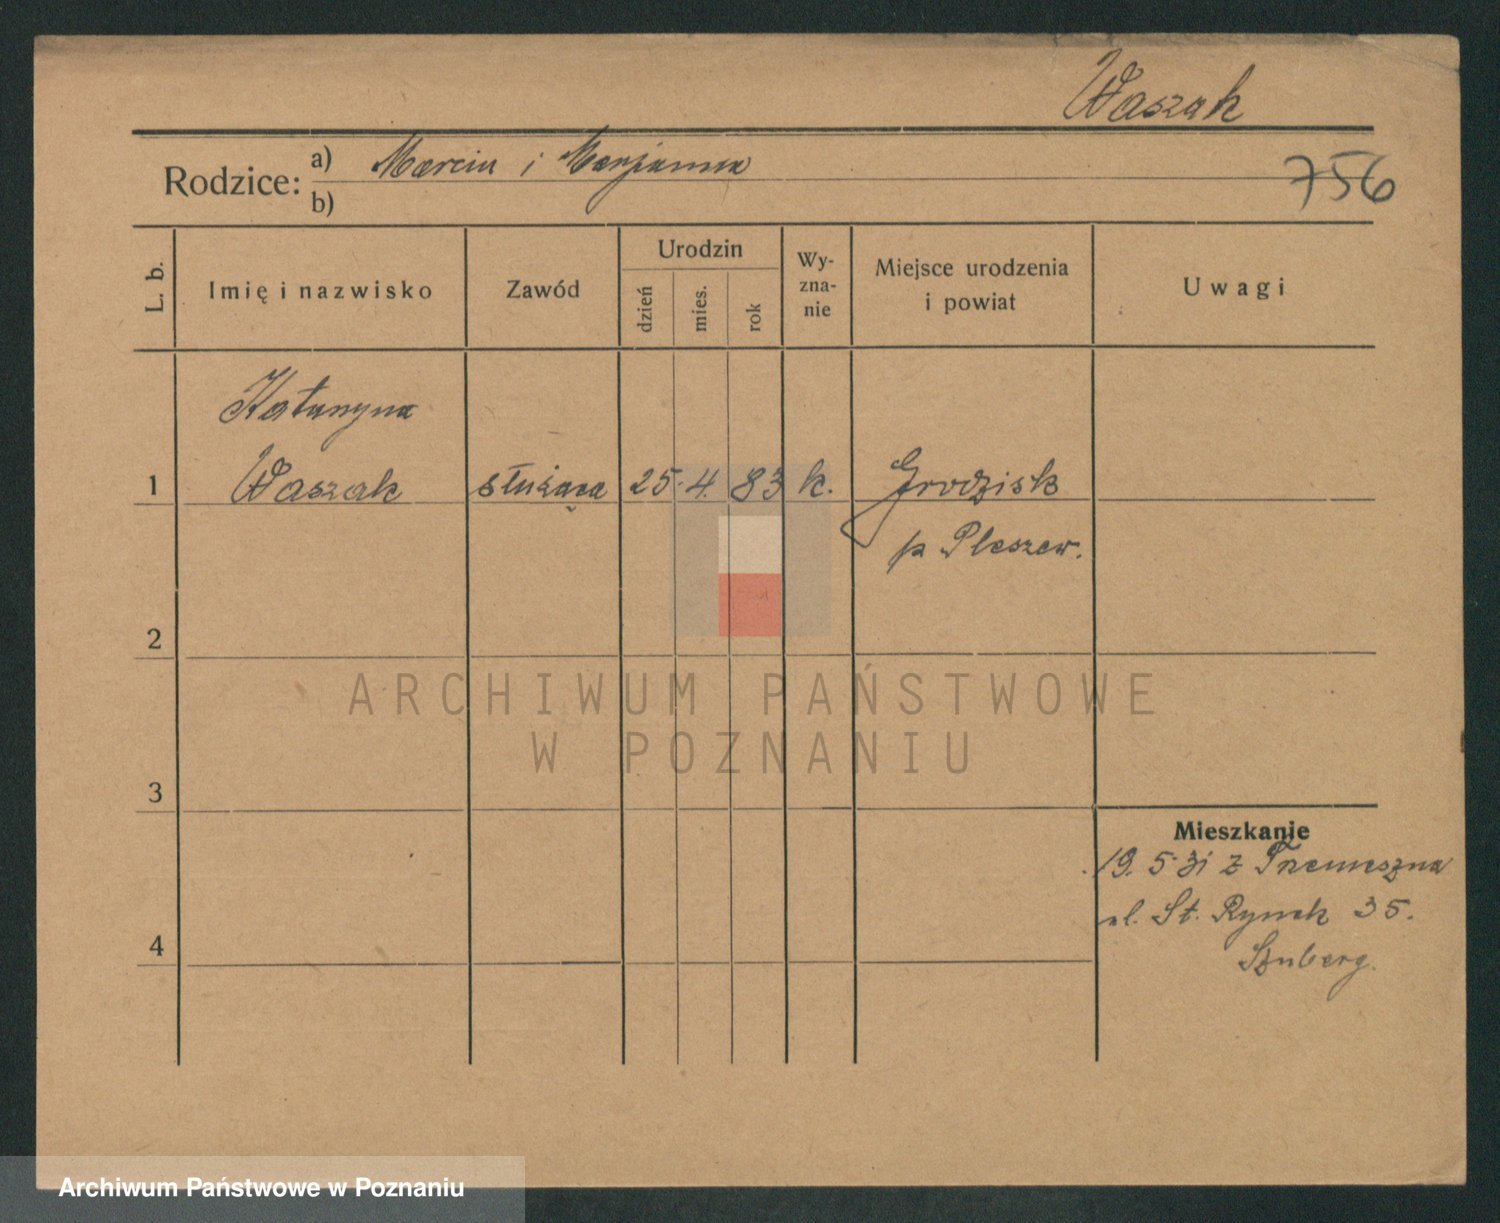 Waszak
Rodzice: a) Marcin i Marjanna
b)
756
L. b.
Imię i nazwisko
Zawód
Urodzin
dzień
mies.
rok
Wy-
zna-
nie
Miejsce urodzenia
i powiat
Uwagi
Katarzyna
1 Waszak służąca 25. 4. 83 k. Grodzisk
p Pleszew.
2
3
4
Mieszkanie
19. 5. 31 z Trzemeszna
ul. St. Rynek 35.
Sznberg.
ARCHIWUM PAŃSTWOWE
W POZNANIU
Archiwum Państwowe w Poznaniu